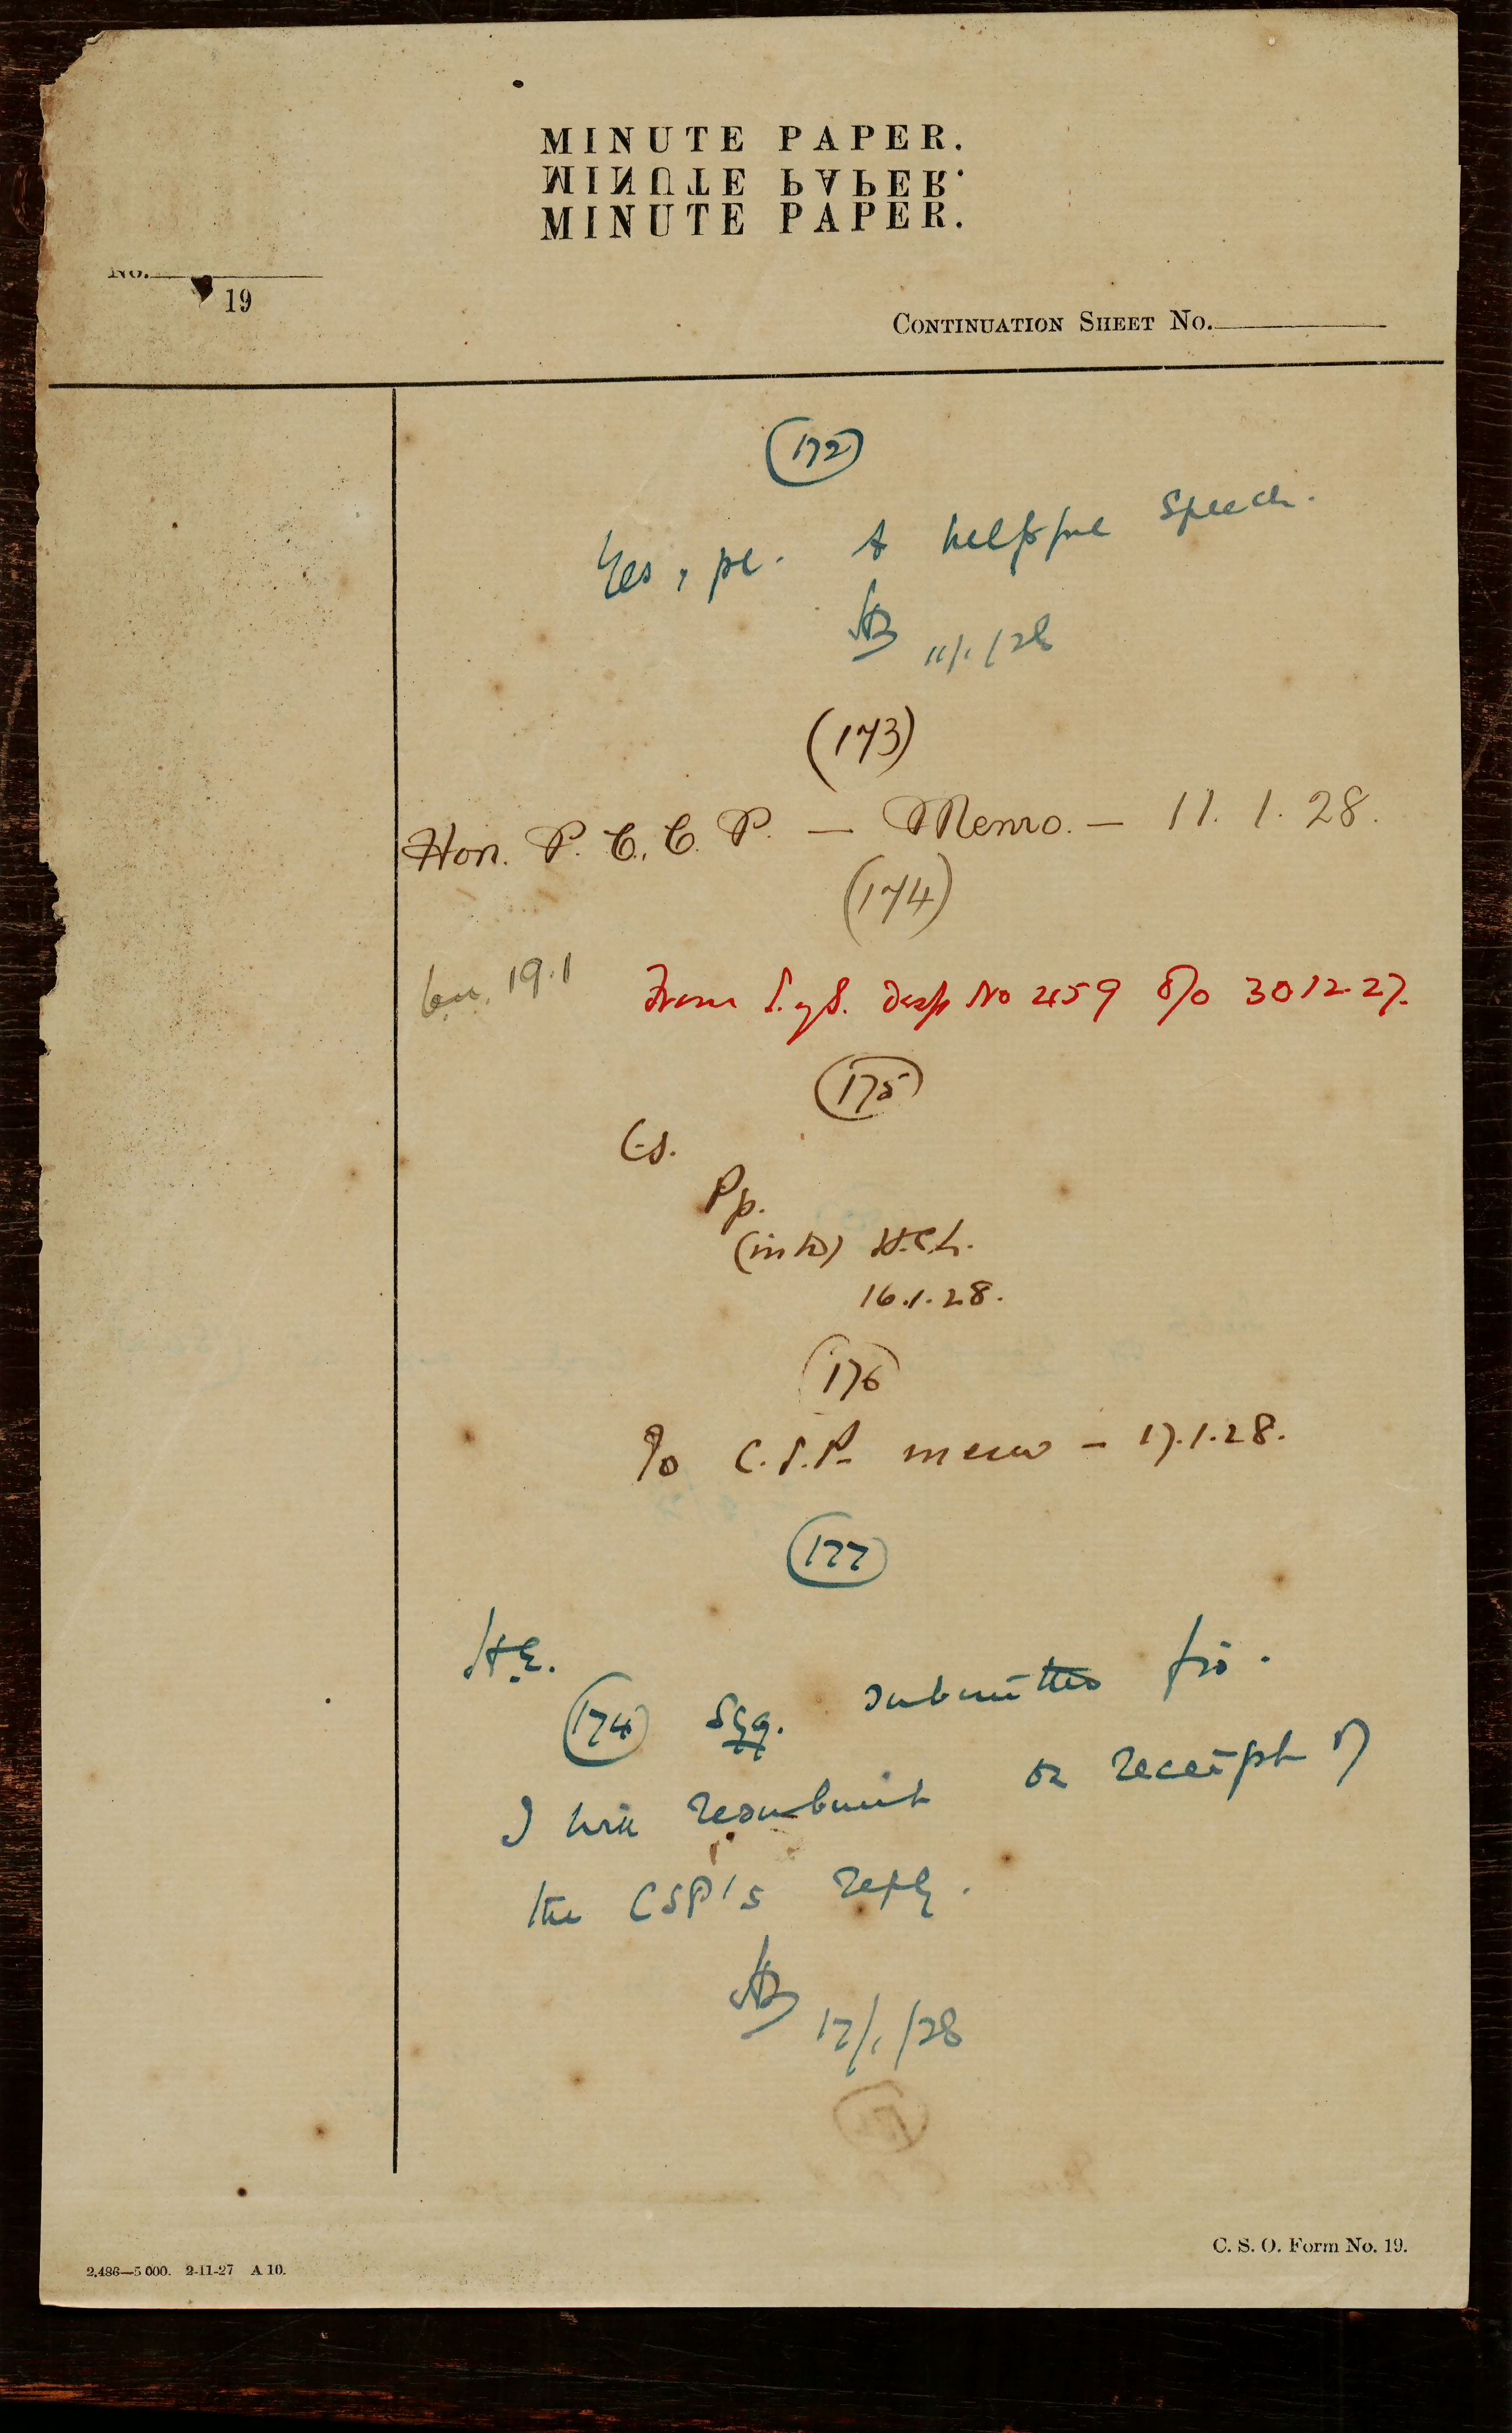 MINUTE PAPER.
MINUTE PAPER.
MINUTE PAPER.
No.
19
CONTINUATION SHEET No.
(172)
Yes, pl. A helpful speech.
11/1/28
(173)
Hon. P. C. C. P. — Memo. — 11. 1. 28.
(174)
19.1 From S. of S. Desp No 459 d/o 30 12 27.
(175)
CS.
Pp.
(intd)
16.1.28.
(176)
To C.S.P. memo – 17.1.28.
(177)
H.E.
(174) sqq. submitted fio.
I will resubmit on receipt of
the CSP's reply.
17/1/28
2,486—5 000. 2-11-27 A 10.
C. S. O. Form No. 19.